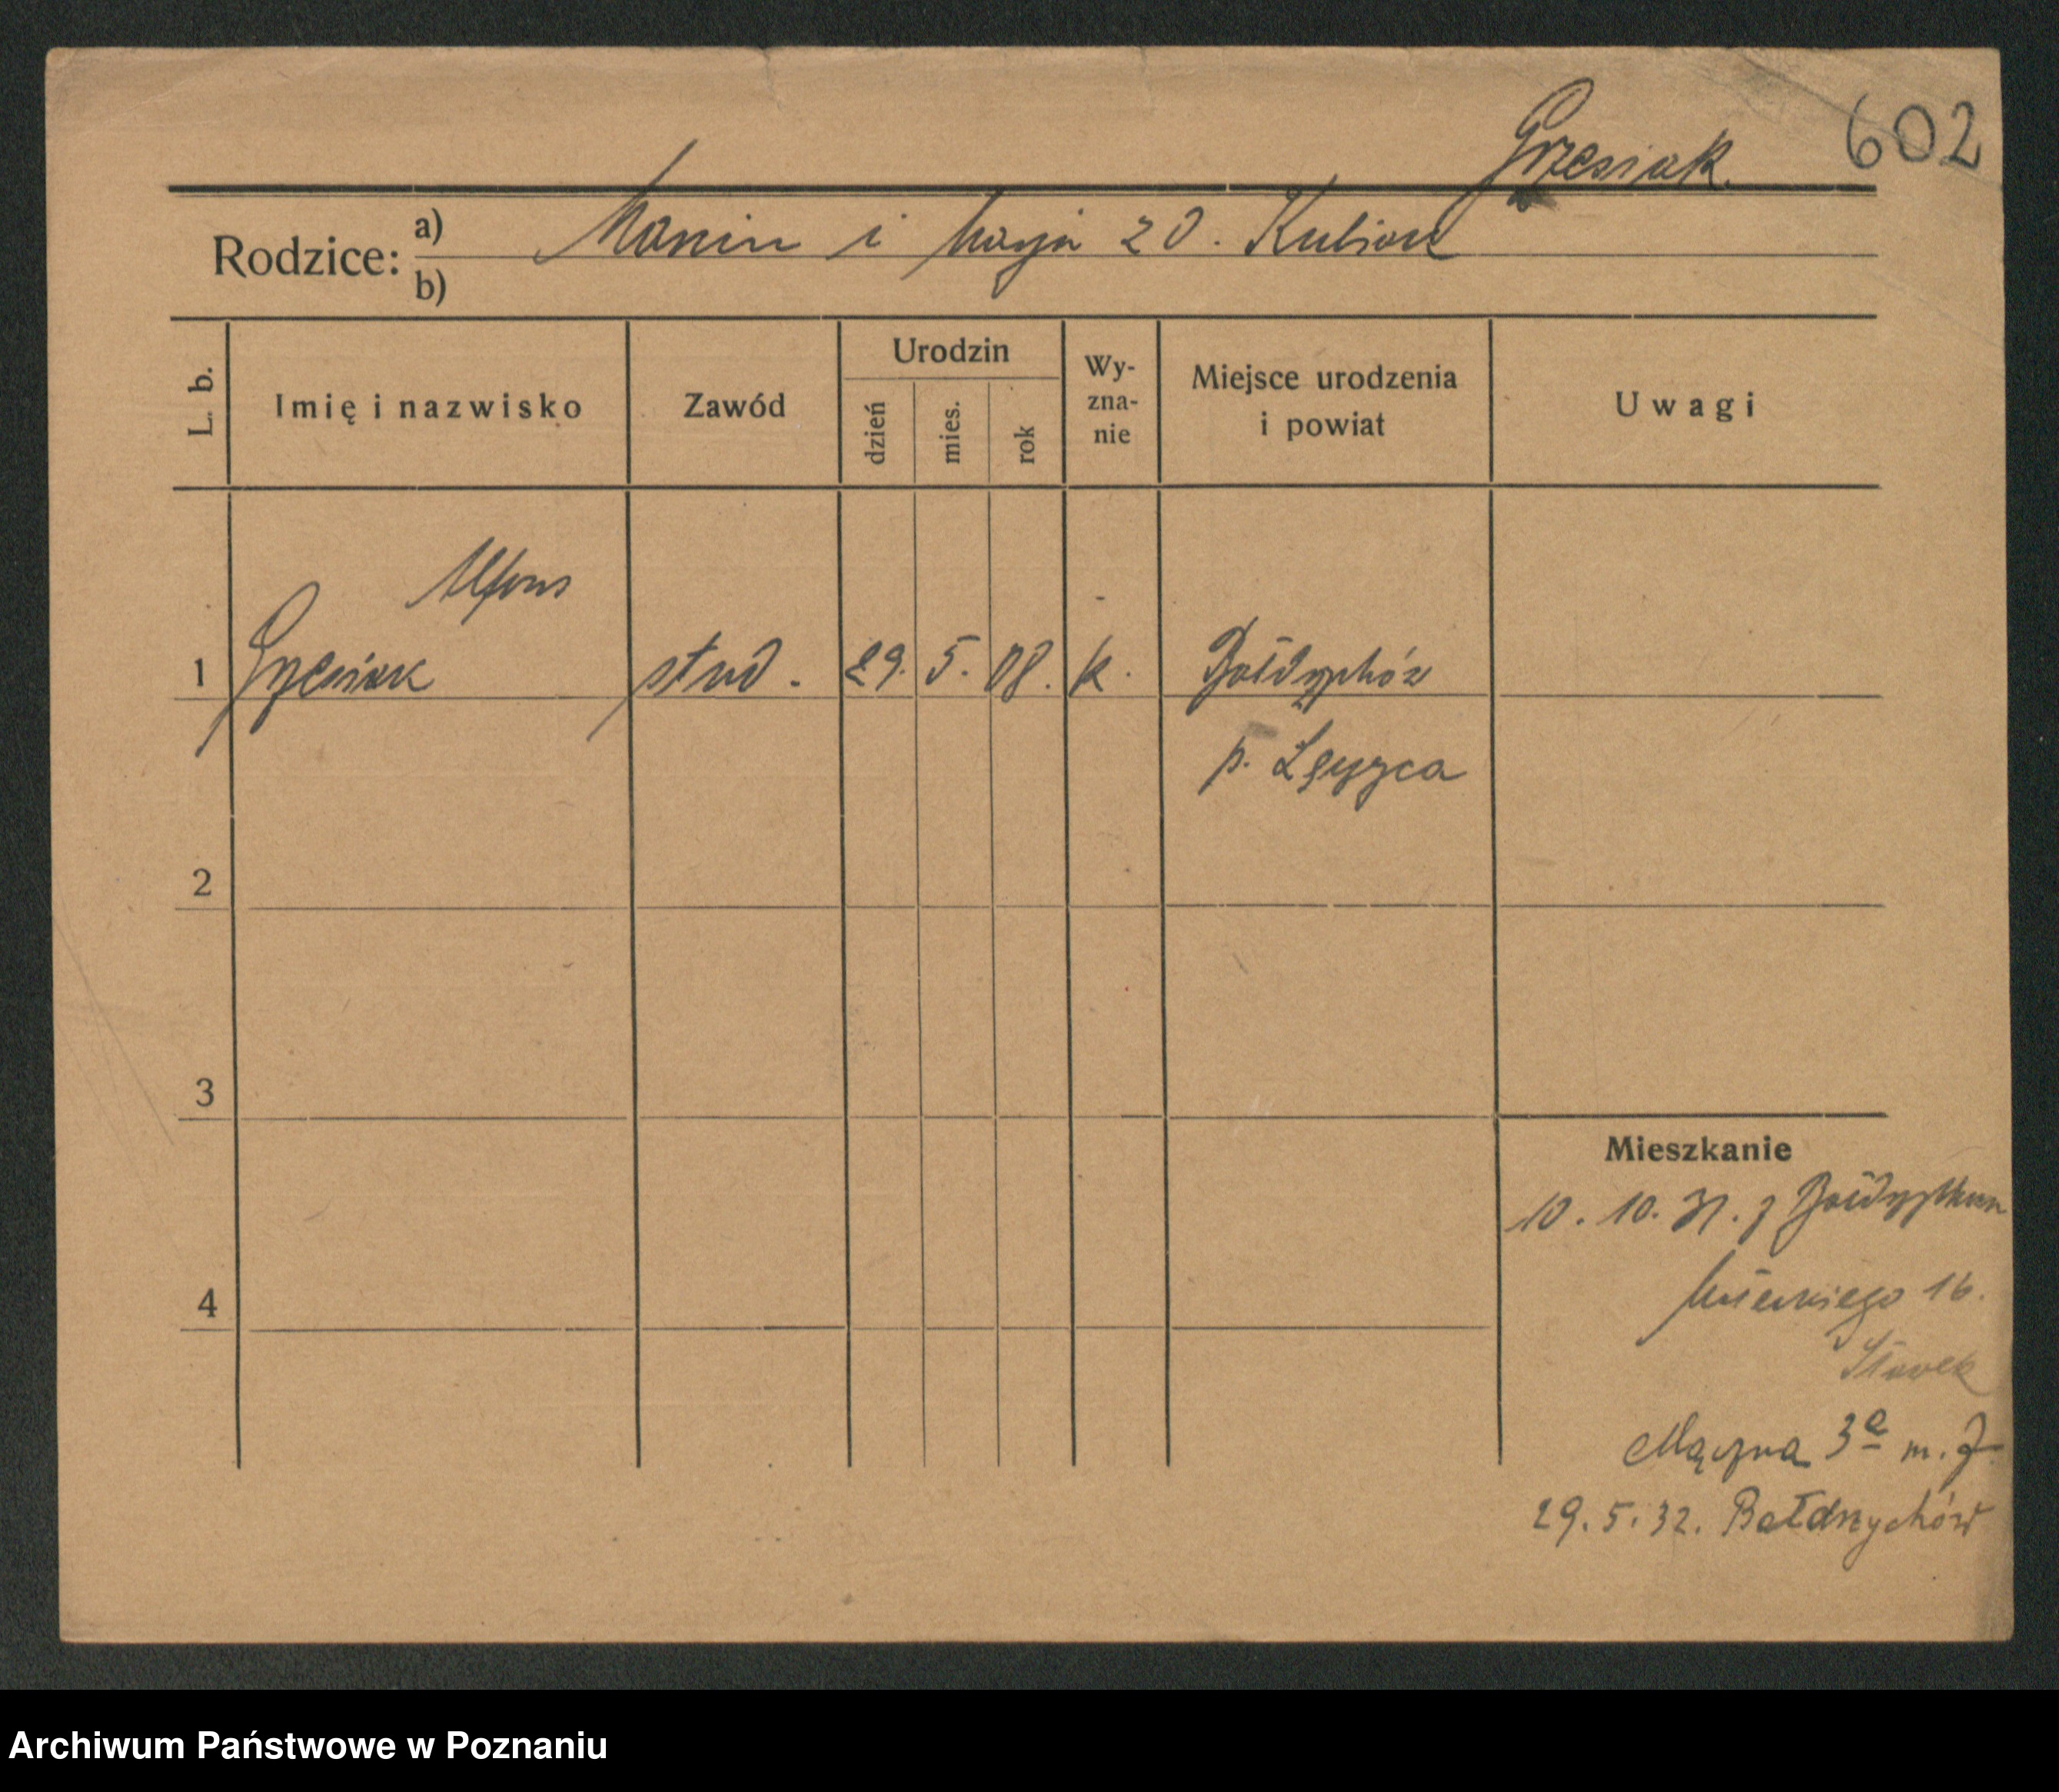 602
Grzesiak.
Rodzice: a) Marcin i Marja z d. Kubiak
b)
L. b.
Imię i nazwisko
Zawód
Urodzin
dzień
mies.
rok
Wy-
zna-
nie
Miejsce urodzenia
i powiat
Uwagi
Alfons
1 Grzesiak stud. 29. 5. 08. k. Bałdrzychów
p. Łęczyca
2
3
Mieszkanie
10. 10. 31. z
4
16.
Sławek
Mączna 3a m. 7
29. 5. 32. Bałdrzychów
Archiwum Państwowe w Poznaniu